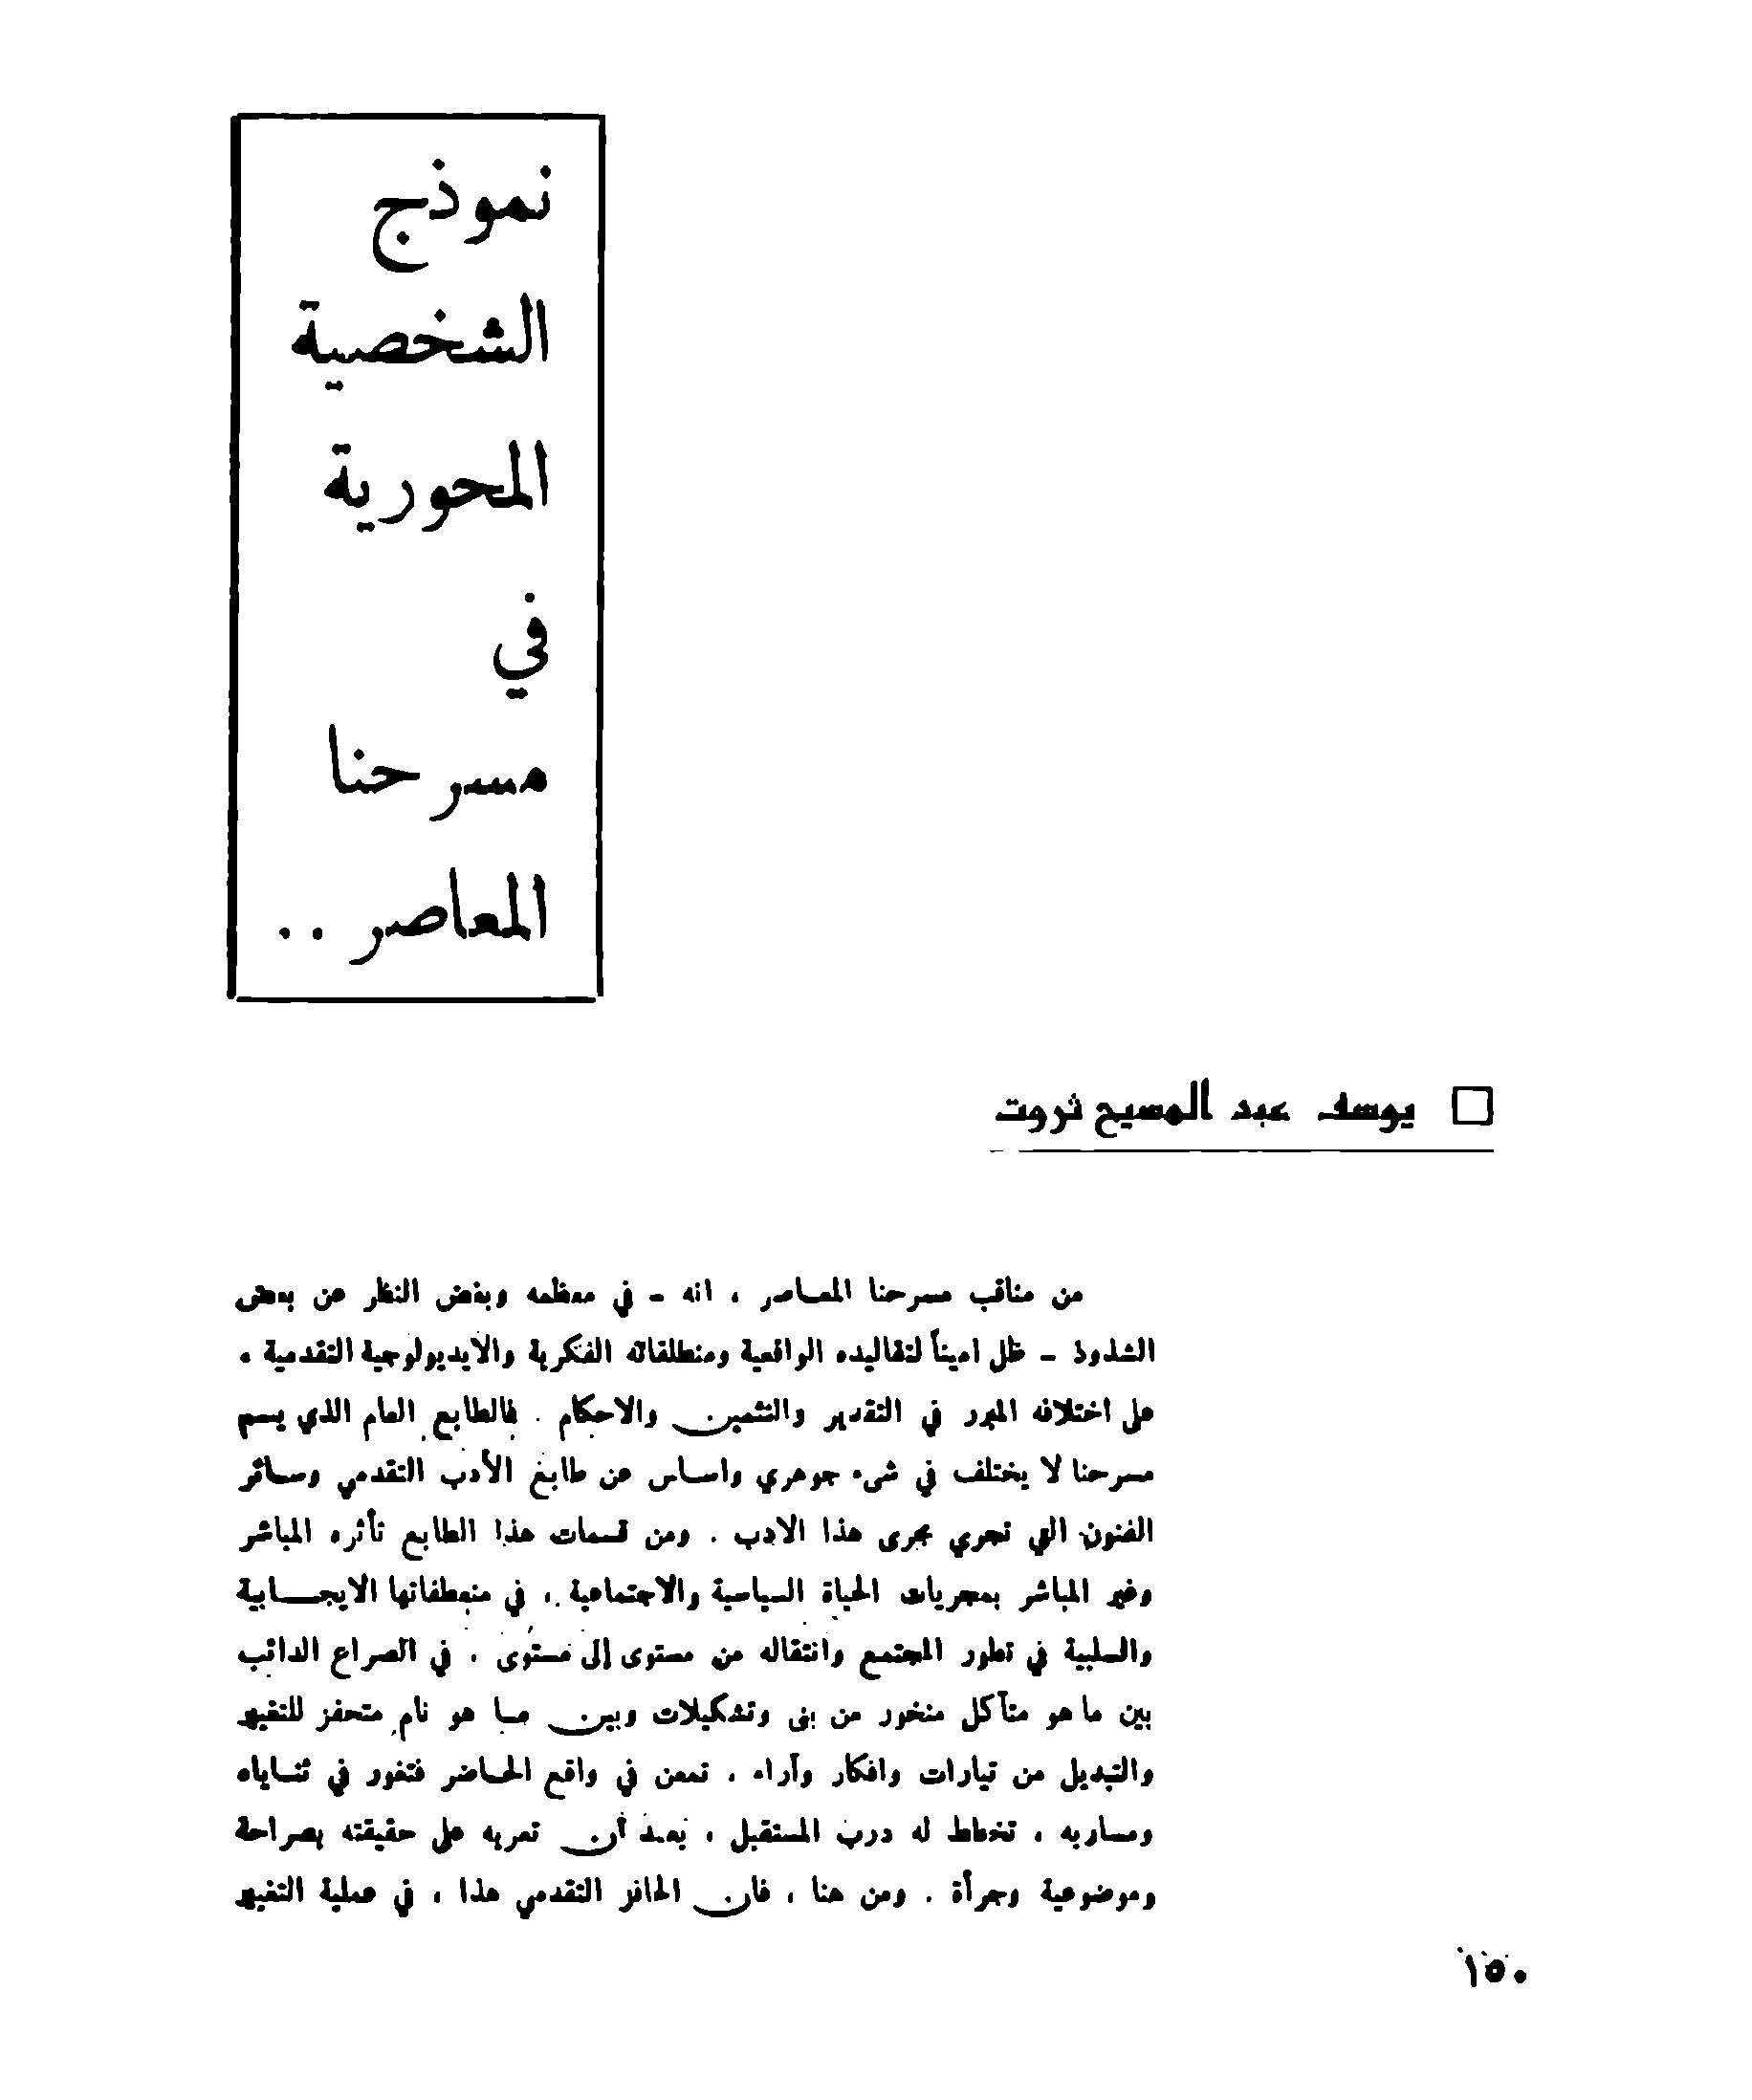 نموذج
الشخصية
المحورية
في
مسرحنا
المعاصر ..
يوسف عبد المسيح ثروت
من مناقب مسرحنا المعاصر ، انه - في معظمه وبغض النظر عن بعض
الشذوذ - ظل اميناً لتقاليده الواقعية ومنطلقاته الفكرية والايديولوجية التقدمية ،
على اختلافه المبرر في التقدير والتثمين والاحكام . فالطابع العام الذي يسم
مسرحنا لا يختلف في شيء جوهري واساس عن طابع الأدب التقدمي وسائر
الفنون التي تجري مجرى هذا الادب . ومن قسمات هذا الطابع تأثره المباشر
وغير المباشر بمجريات الحياة السياسية والاجتماعية ، في منعطفاتها الايجابية
والسلبية في تطور المجتمع وانتقاله من مستوى إلى مستوى ، في الصراع الدائب
بين ما هو متآكل منخور من بنى وتشكيلات وبين ما هو نام متحفز للتغيير
والتبديل من تيارات وافكار وآراء ، تمعن في واقع الحاضر فتغور في ثناياه
ومساربه ، تخطط له درب المستقبل ، بعد أن تعريه على حقيقته بصراحة
وموضوعية وجرأة . ومن هنا ، فان الحافز التقدمي هذا ، في عملية التغيير
١٥٠